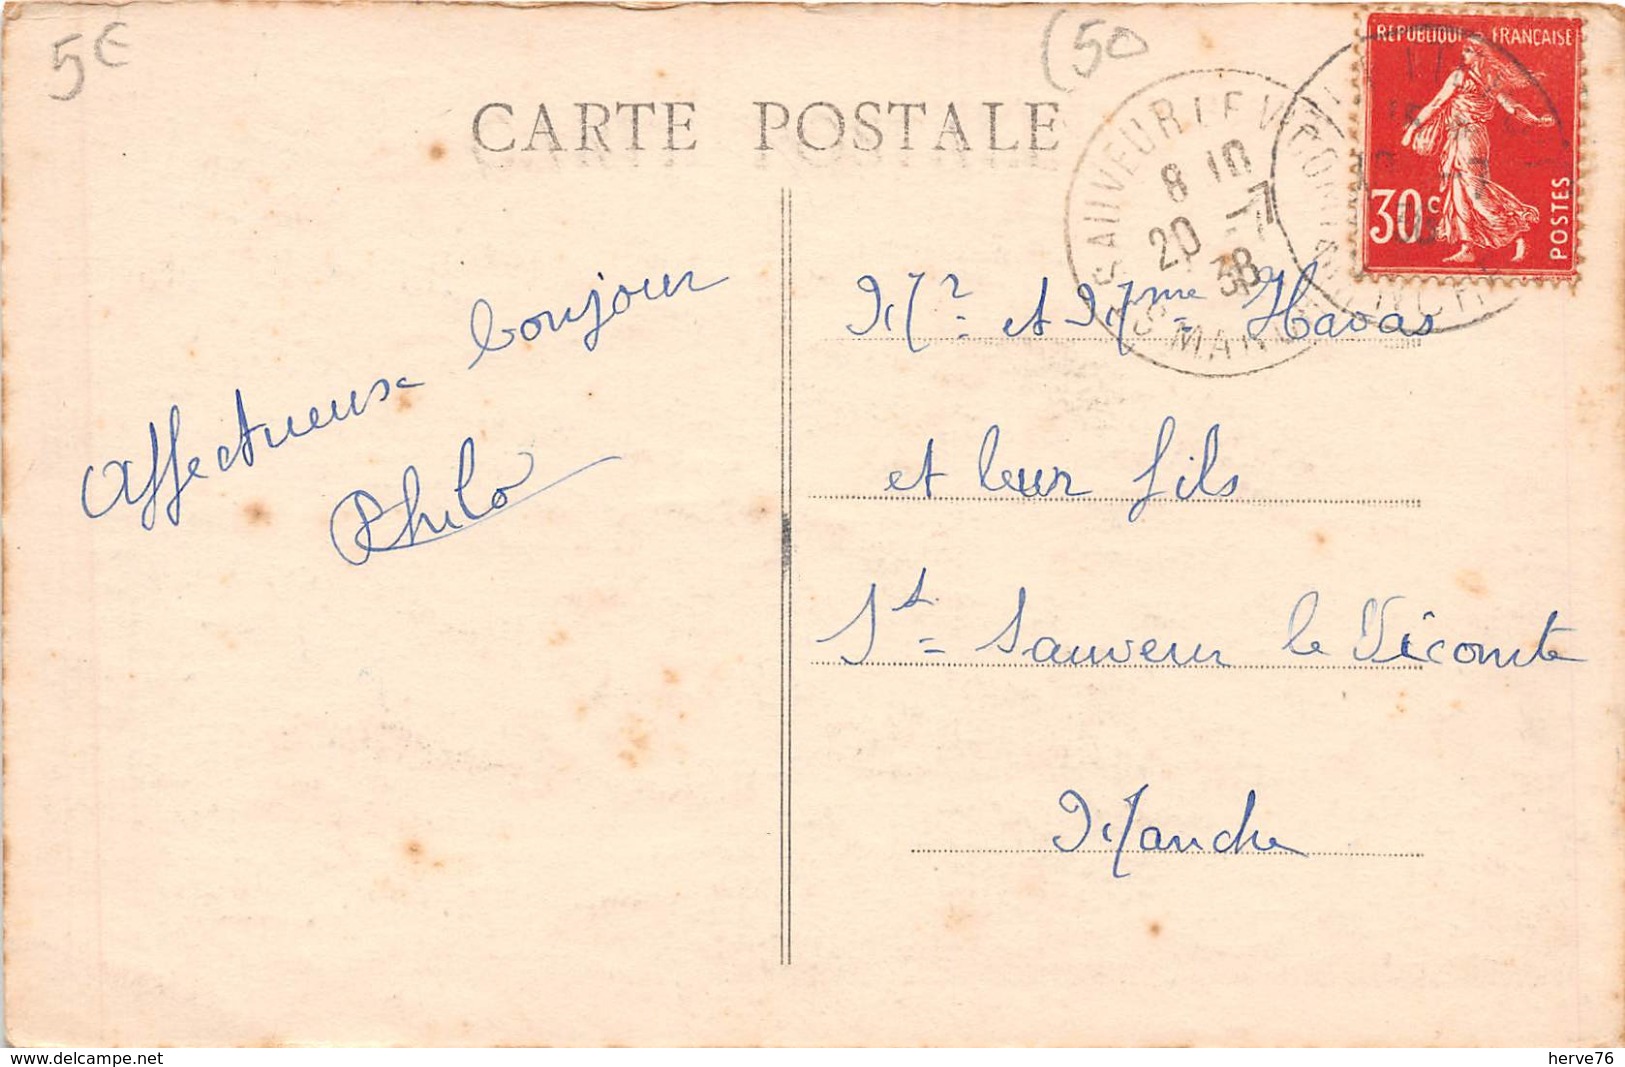 5€
(50
CARTE POSTALE
REPUBLIQUE FRANÇAISE
30c
POSTES
8 10
20 -7
38
Affectueuse bonjour
Philo
Mr et Mme Havas
et leur fils
St Sauveur le Vicomte
Manche
www.delcampe.net
herve76